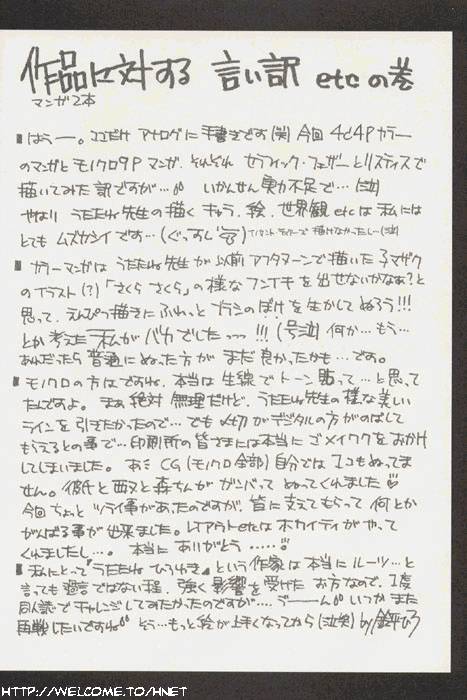 作品に対する 言い訳 etcの巻
マンガ2本
■はうー。ココだけ アナログに 手書きです(笑) 今回 4c4P カラー
のマンガと モノクロ9P マンガ、それぞれ セラフィック・フェザーとリスティスで
描いてみた訳ですが… いかんせん 実力不足で…(泣)
やはり うたたね先生の描く きゃう、絵、世界観etcは 私には
とても ムズカシイです…(ぐっすし
■カラーマンガは うたたね先生が以前 アフタヌーンで描いた
のイラスト(?)「さくら さくら」の様な フンイキを出せないかなぁ?と
思って、えんぴつ描きに ふわっと ブラシのぼけを生かしてぬろう!!!
とか考えた 私がバカでしたっっ!!!(号泣) 何か…もう…
あれだったら 普通にぬった方が まだ良かったかも…です。
■モノクロの方はですね、本当は生線でトーン貼って…と思って
たんですよ。まぁ絶対 無理だけど、うたたね先生の様な美しい
ラインを引きたかったので…でも〆切がデジタルの方がのばして
もらえるとの事で…印刷所の皆さまには本当に ゴメイワクを おかけ
してしまいました。あぅ CG(モノクロ全部) 自分では 1コもぬってま
せん。彼氏と 西又と森ちんが ガンバって ぬってくれました
今回 ちょっと ツライ事があったのですが、皆に支えてもらって 何とか
がんばる事が出来ました。レイアウトetcは ホカイティが やって
くれましたし…。本当に ありがとう……
■私にとって『うたたねひろゆき』という作家は 本当に ルーツ…と
言っても 過言ではない程、強く 影響を受けた お方なので、1度
同人誌でチャレンジしてみたかったのですが…。うーーん いつか また
再戦したいですね どう…もっと 絵が上手くなってから(泣笑) by
HTTP://WELCOME.TO/HNET